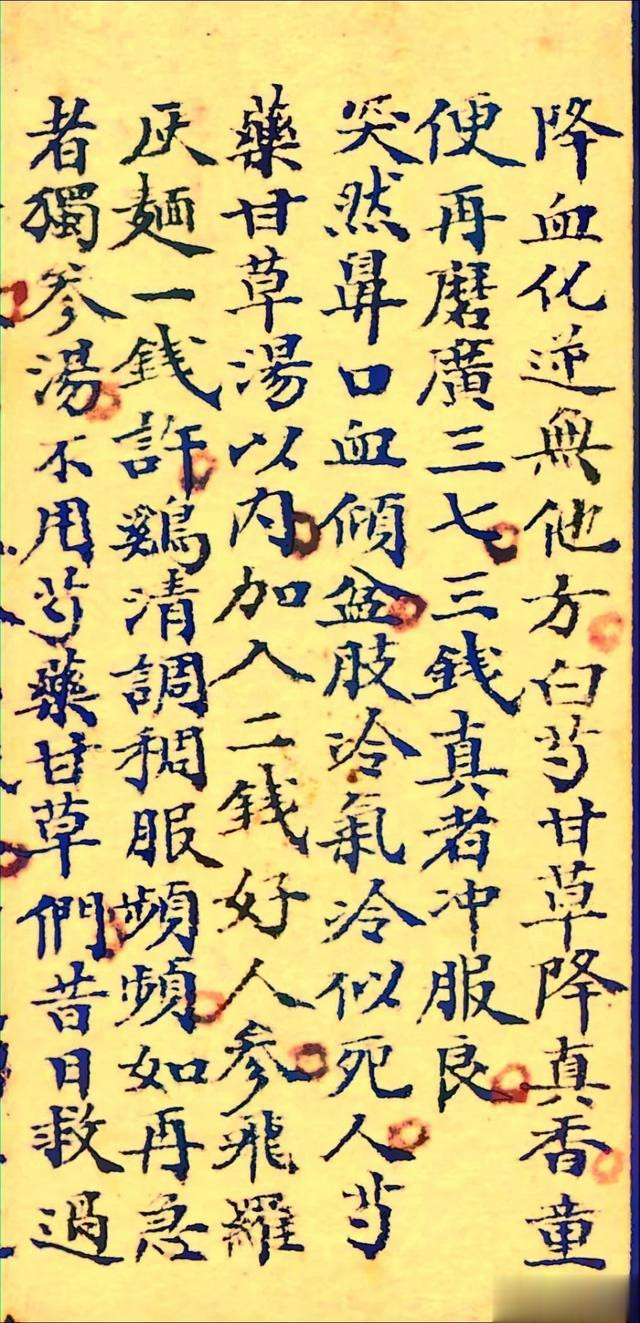 降血化逆無他方白芍甘草降真香童
便再磨廣三七三錢真者冲服良
突然鼻口血傾盆肢冷氣冷似死人芍
藥甘草湯以内加入二錢好人参飛羅
灰麺一錢許鷄清調稠服頻頻如再急
者獨参湯不用芍藥甘草們昔日救過